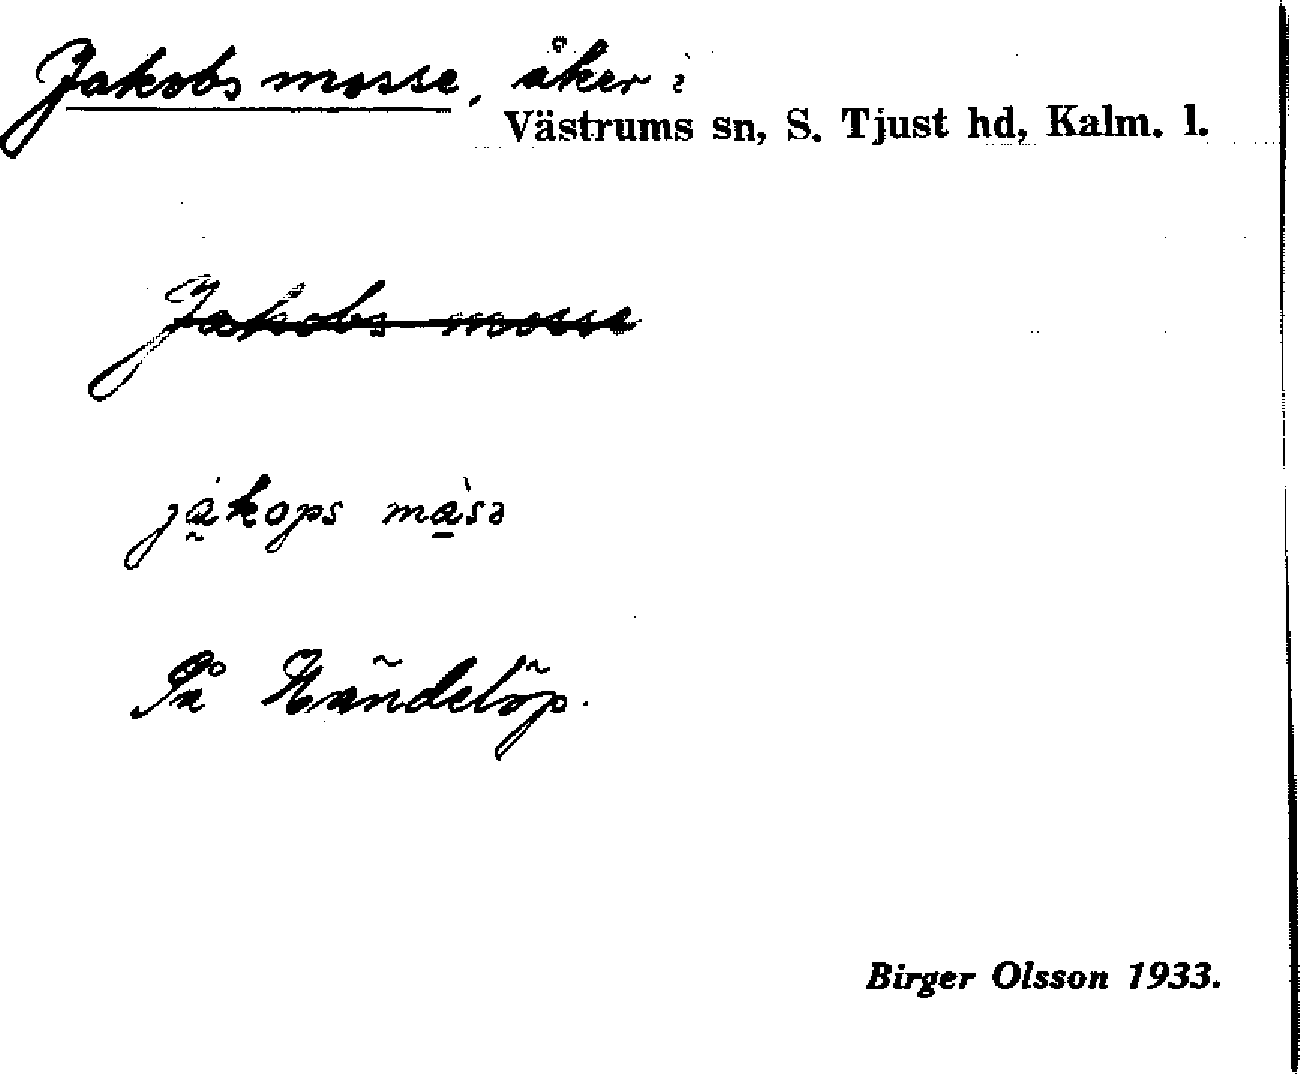 Jakobs mosse, åker i
Västrums sn, S. Tjust hd, Kalm. l.
Jakobs mosse
jakops màsə
På Händelöp.
Birger Olsson 1933.